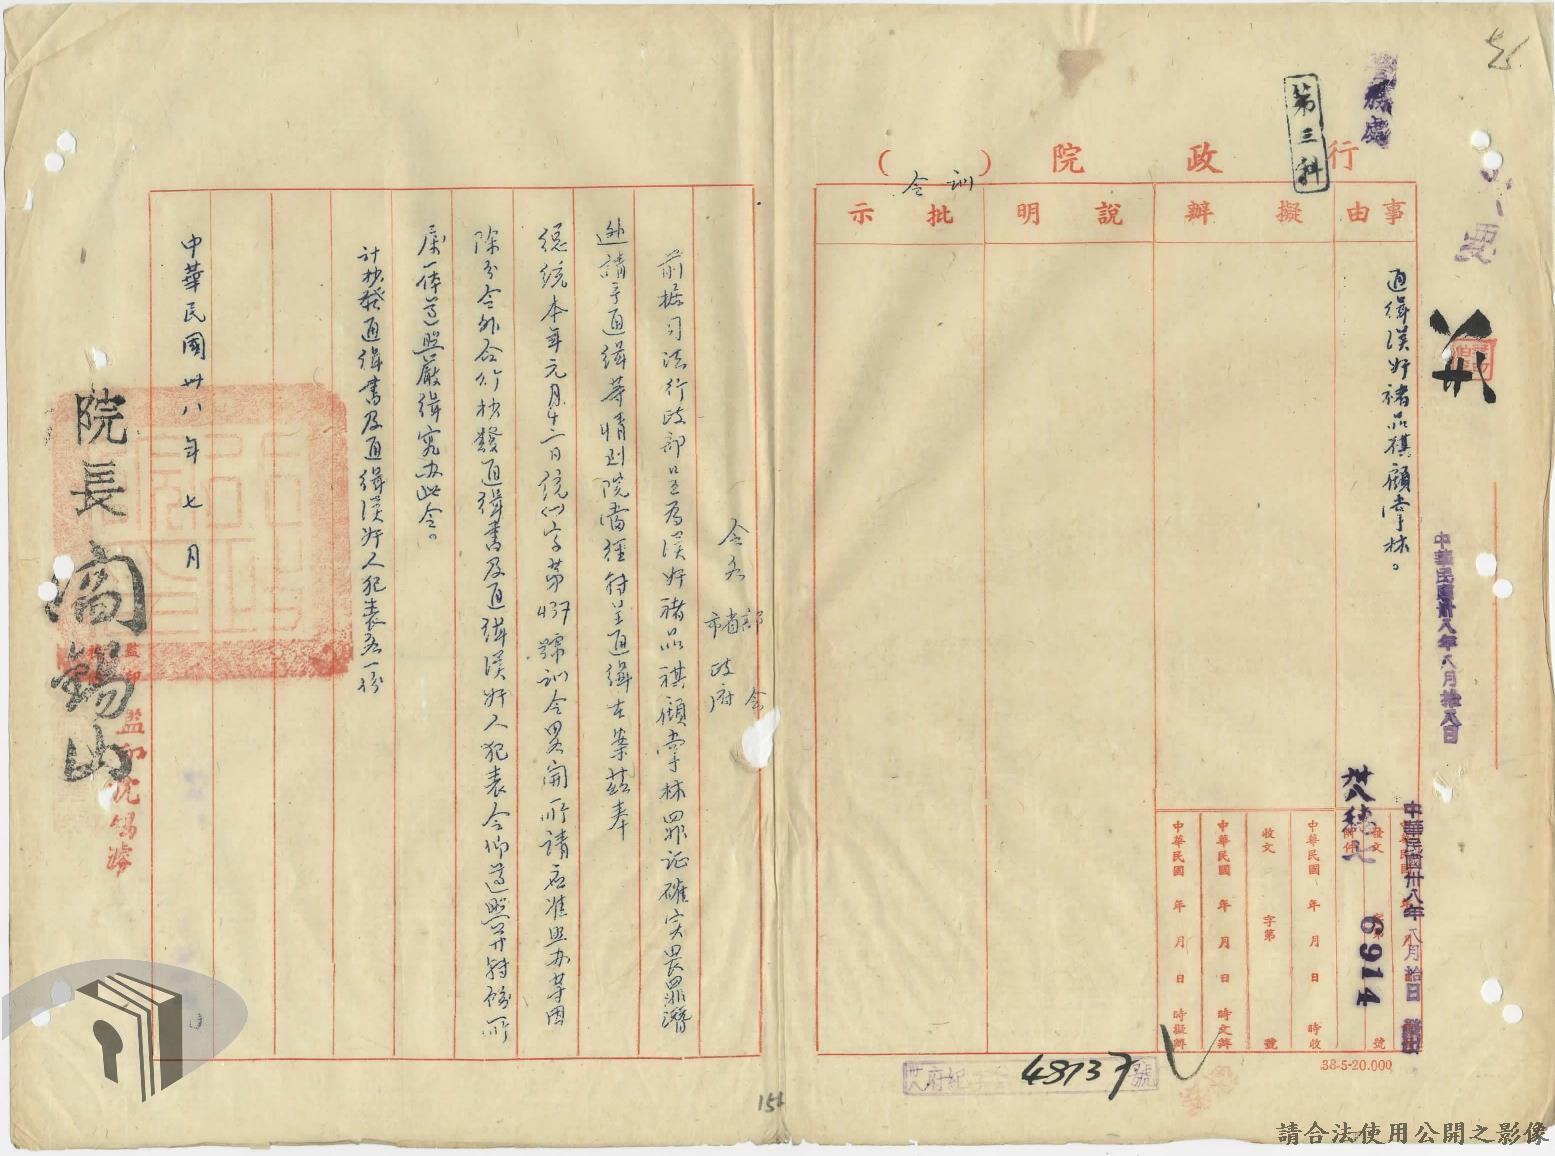 行政院（訓令）
第三科
事由
擬辦
說明
批示
通緝漢奸褚品祺顧掌林。
中華民國卅八年八月拾八日
中華民國卅八年八月拾日
卅八穗七
6914
中華民國 年 月 日 時收
收文 字第 號
中華民國 年 月 日 時交辦
中華民國 年 月 日 時擬辦
38-5-20.000
48737
號
令各
部會
省
市
政府
前据司法行政部呈為漢奸褚品祺顧掌林罪証確實畏罪潛
逃請予通緝等情到院當經轉呈通緝在案茲奉
總統本年元月十二日統(一)字第437號訓令畧開所請應准照办等因
除分令外合行抄發通緝書及通緝漢奸人犯表令仰遵照并轉飭所
屬一体遵照嚴緝究办此令。
計抄發通緝書及通緝漢奸人犯表各一份
中華民國卅八年七月
院長閻錫山
監印
請合法使用公開之影像